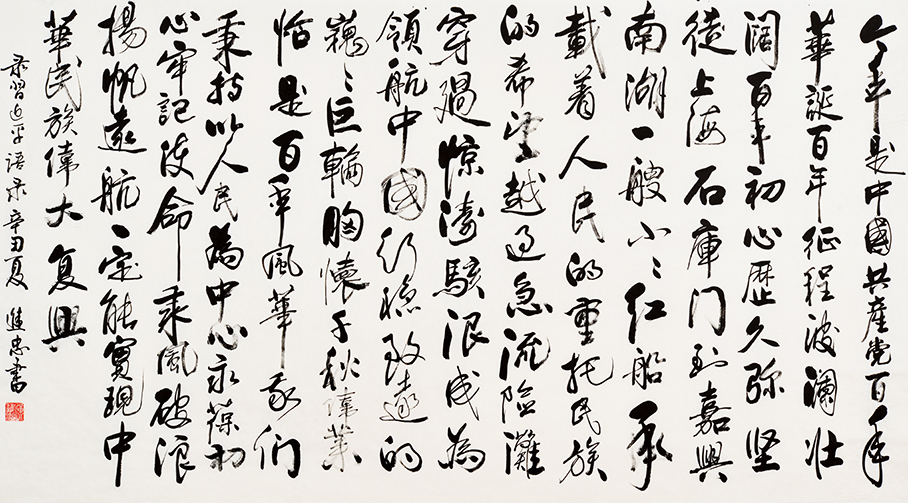 今年是中國共產党百年
華誕百年征程波瀾壮
阔百年初心歴久弥坚
從上海石庫门到嘉興
南湖一艘小〻红船承
載着人民的重托民族
的希望越过急流險灘
穿過惊涛駭浪成為
領航中國行稳致遠的
巍〻巨輪胸懷千秋偉業
恰是百年風華我们
秉持以人民為中心永葆初
心牢記使命乘風破浪
揚帆遠航一定能實現中
華民族偉大复興
录習近平語录辛丑夏 進忠書